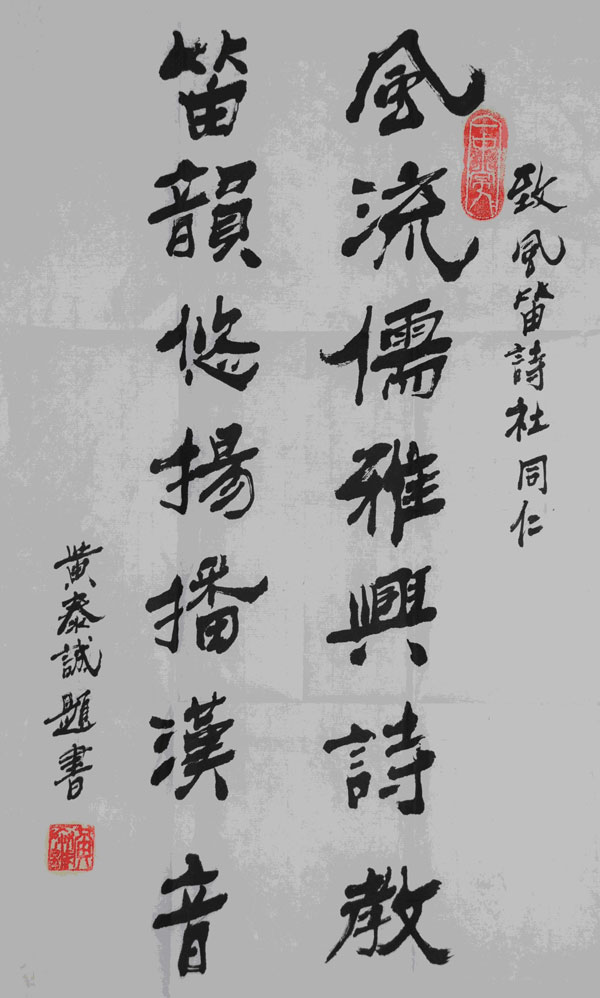 致風笛詩社同仁
風流儒雅興詩教
笛韻悠揚播漢音
黄泰誠題書